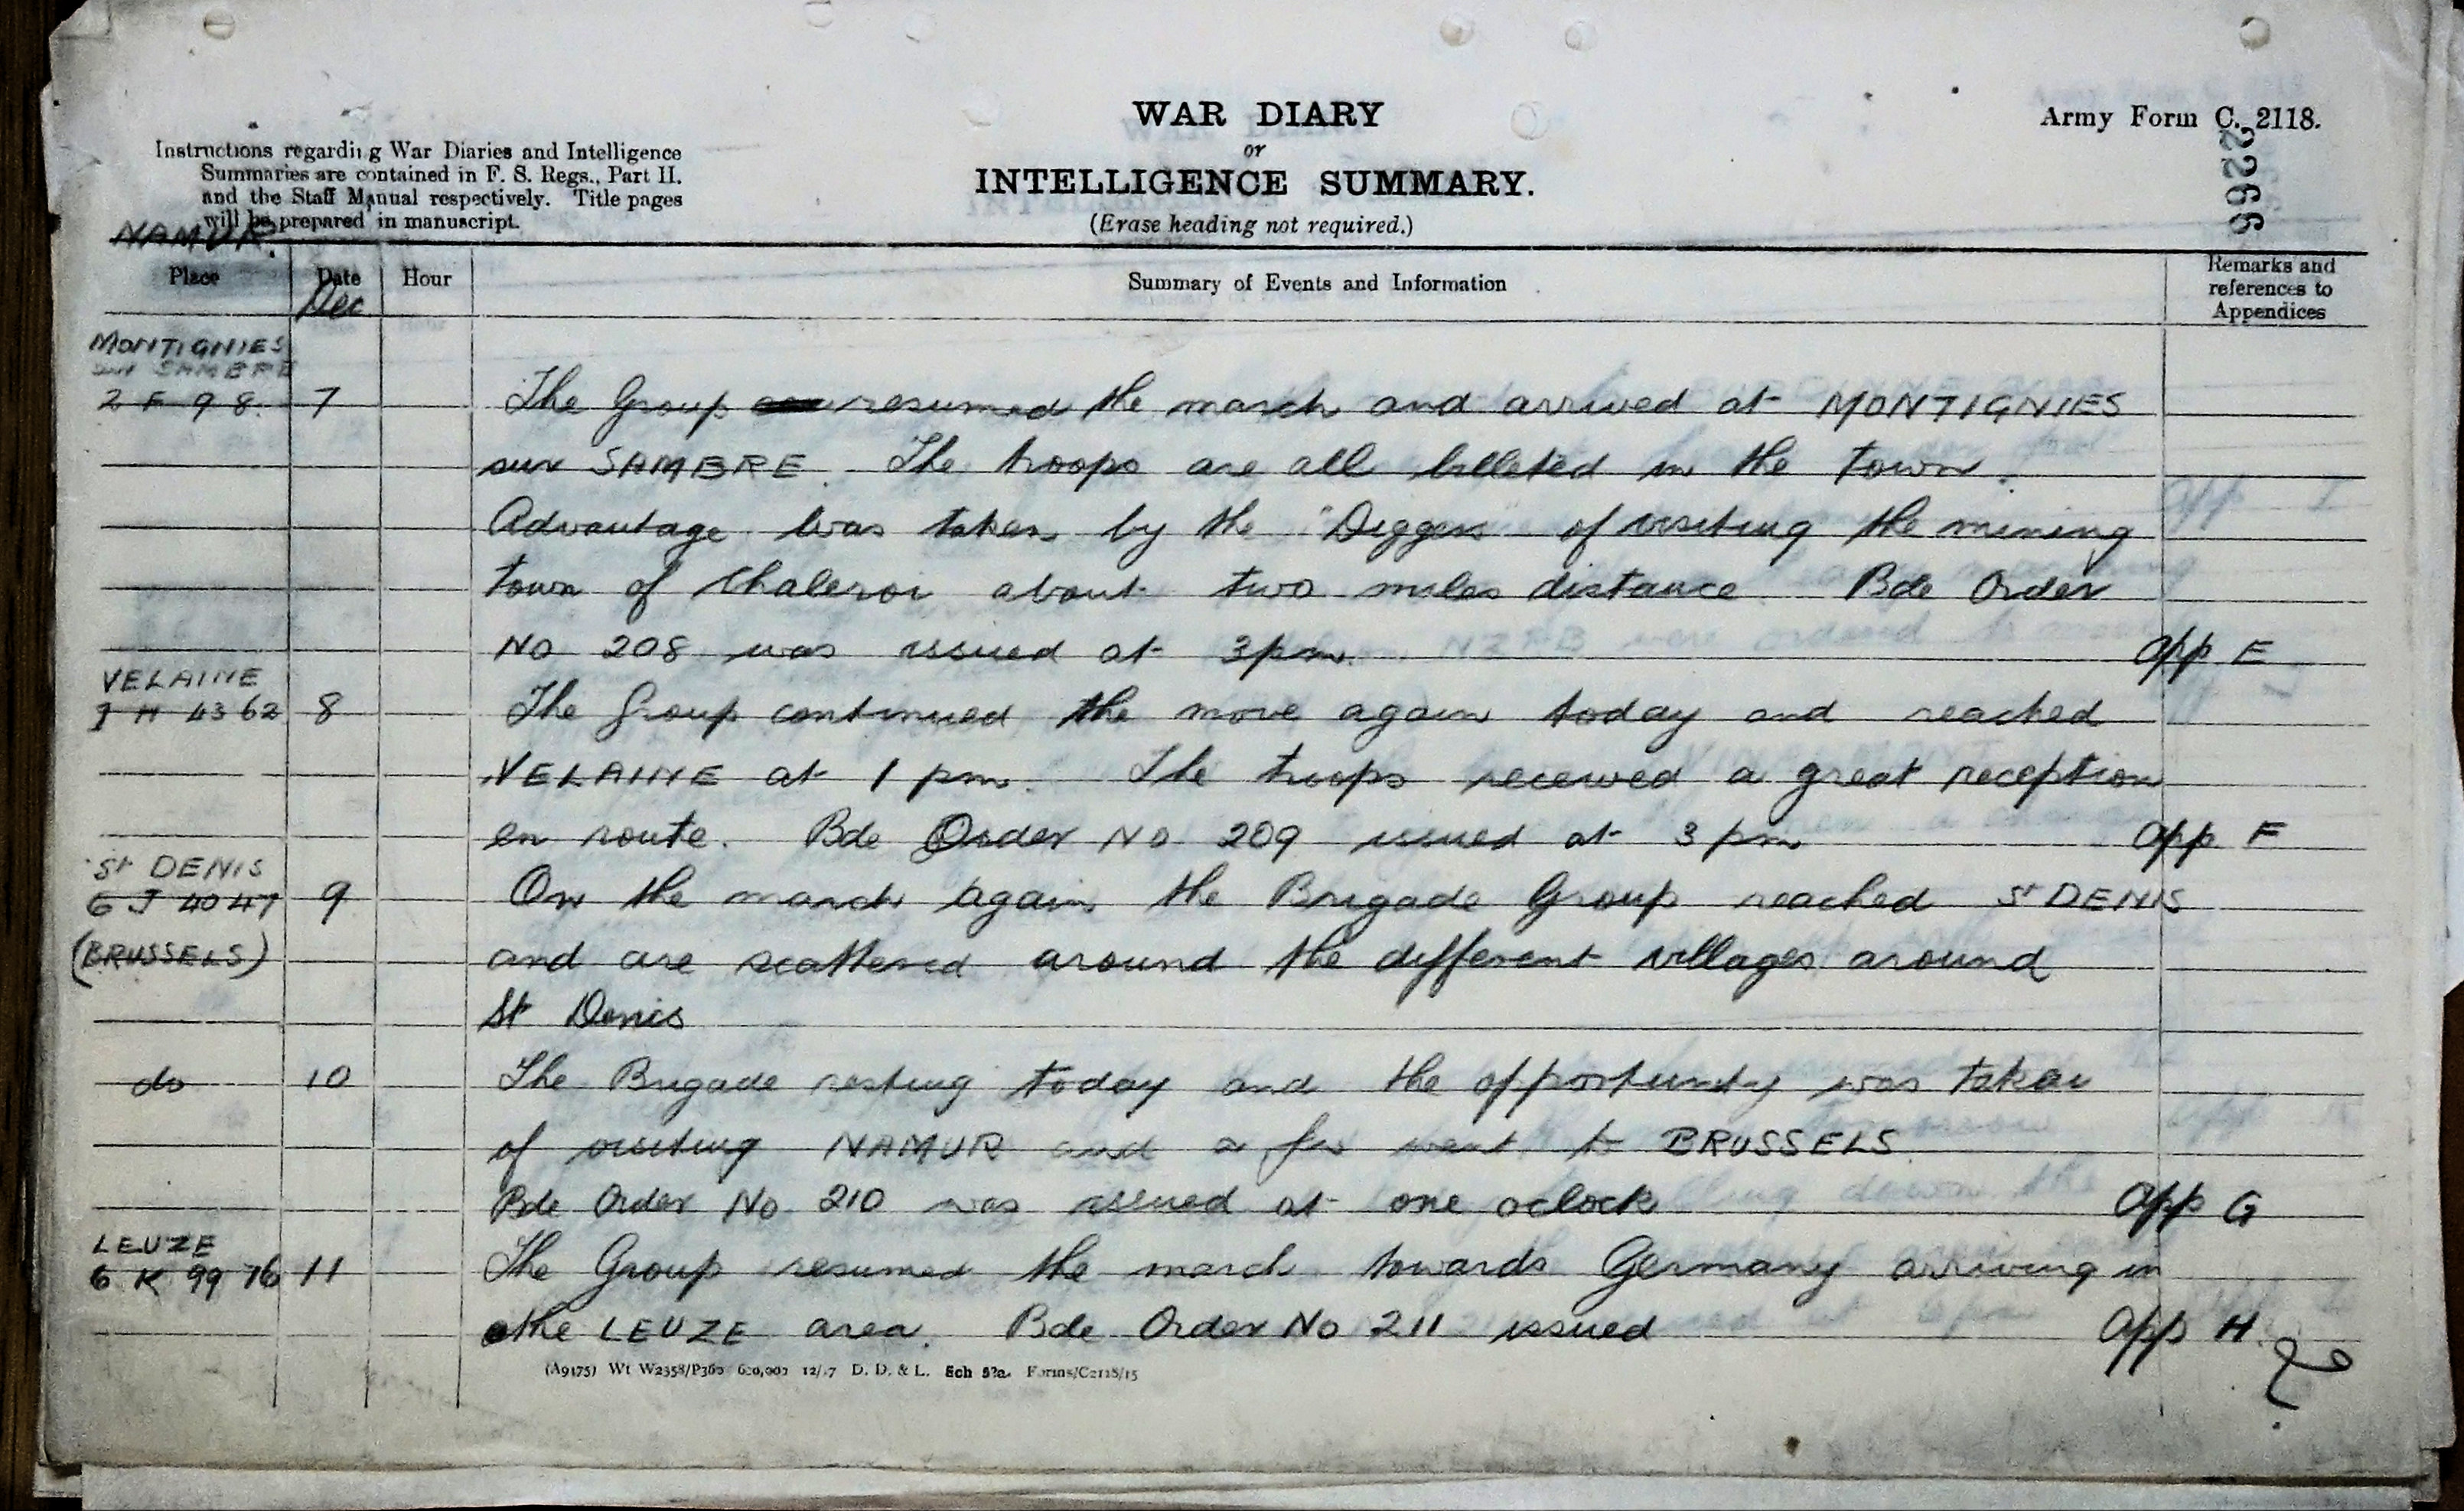 WAR DIARY
or
INTELLIGENCE SUMMARY.
(Erase heading not required.)
Army Form C. 2118.
Instructions regarding War Diaries and Intelligence
Summaries are contained in F. S. Regs., Part II.
and the Staff Manual respectively. Title pages
will be prepared in manuscript.
NAMUR.
Place Date Hour Summary of Events and Information Remarks and references to Appendices
Dec
MONTIGNIES
sur SAMBRE
2 F 9 8. 7 The Group resumed the march and arrived at MONTIGNIES
sur SAMBRE. The troops are all billeted in the town.
Advantage was taken by the "Diggers" of visiting the mining
town of Chaleroi about two miles distance. Bde Order
No 208 was issued at 3pm. App E
VELAINE
H 43 62 8 The Group continued the move again today and reached
VELAINE at 1 pm. The troops received a great reception
en route. Bde Order No 209 issued at 3 pm App F
St DENIS
6 J 40 47 9 On the march again the Brigade Group reached St DENIS
(BRUSSELS) and are scattered around the different villages around
St Denis
do 10 The Brigade resting today and the opportunity was taken
of visiting NAMUR and a few went to BRUSSELS.
Bde Order No 210 was issued at one oclock App G
LEUZE
6 K 99 76 11 The Group resumed the march towards Germany arriving in
the LEUZE area. Bde Order No 211 issued App H
(A9175) Wt W2358/P360 600,000 12/17 D. D. & L. Sch 52a. Forms/C2118/15